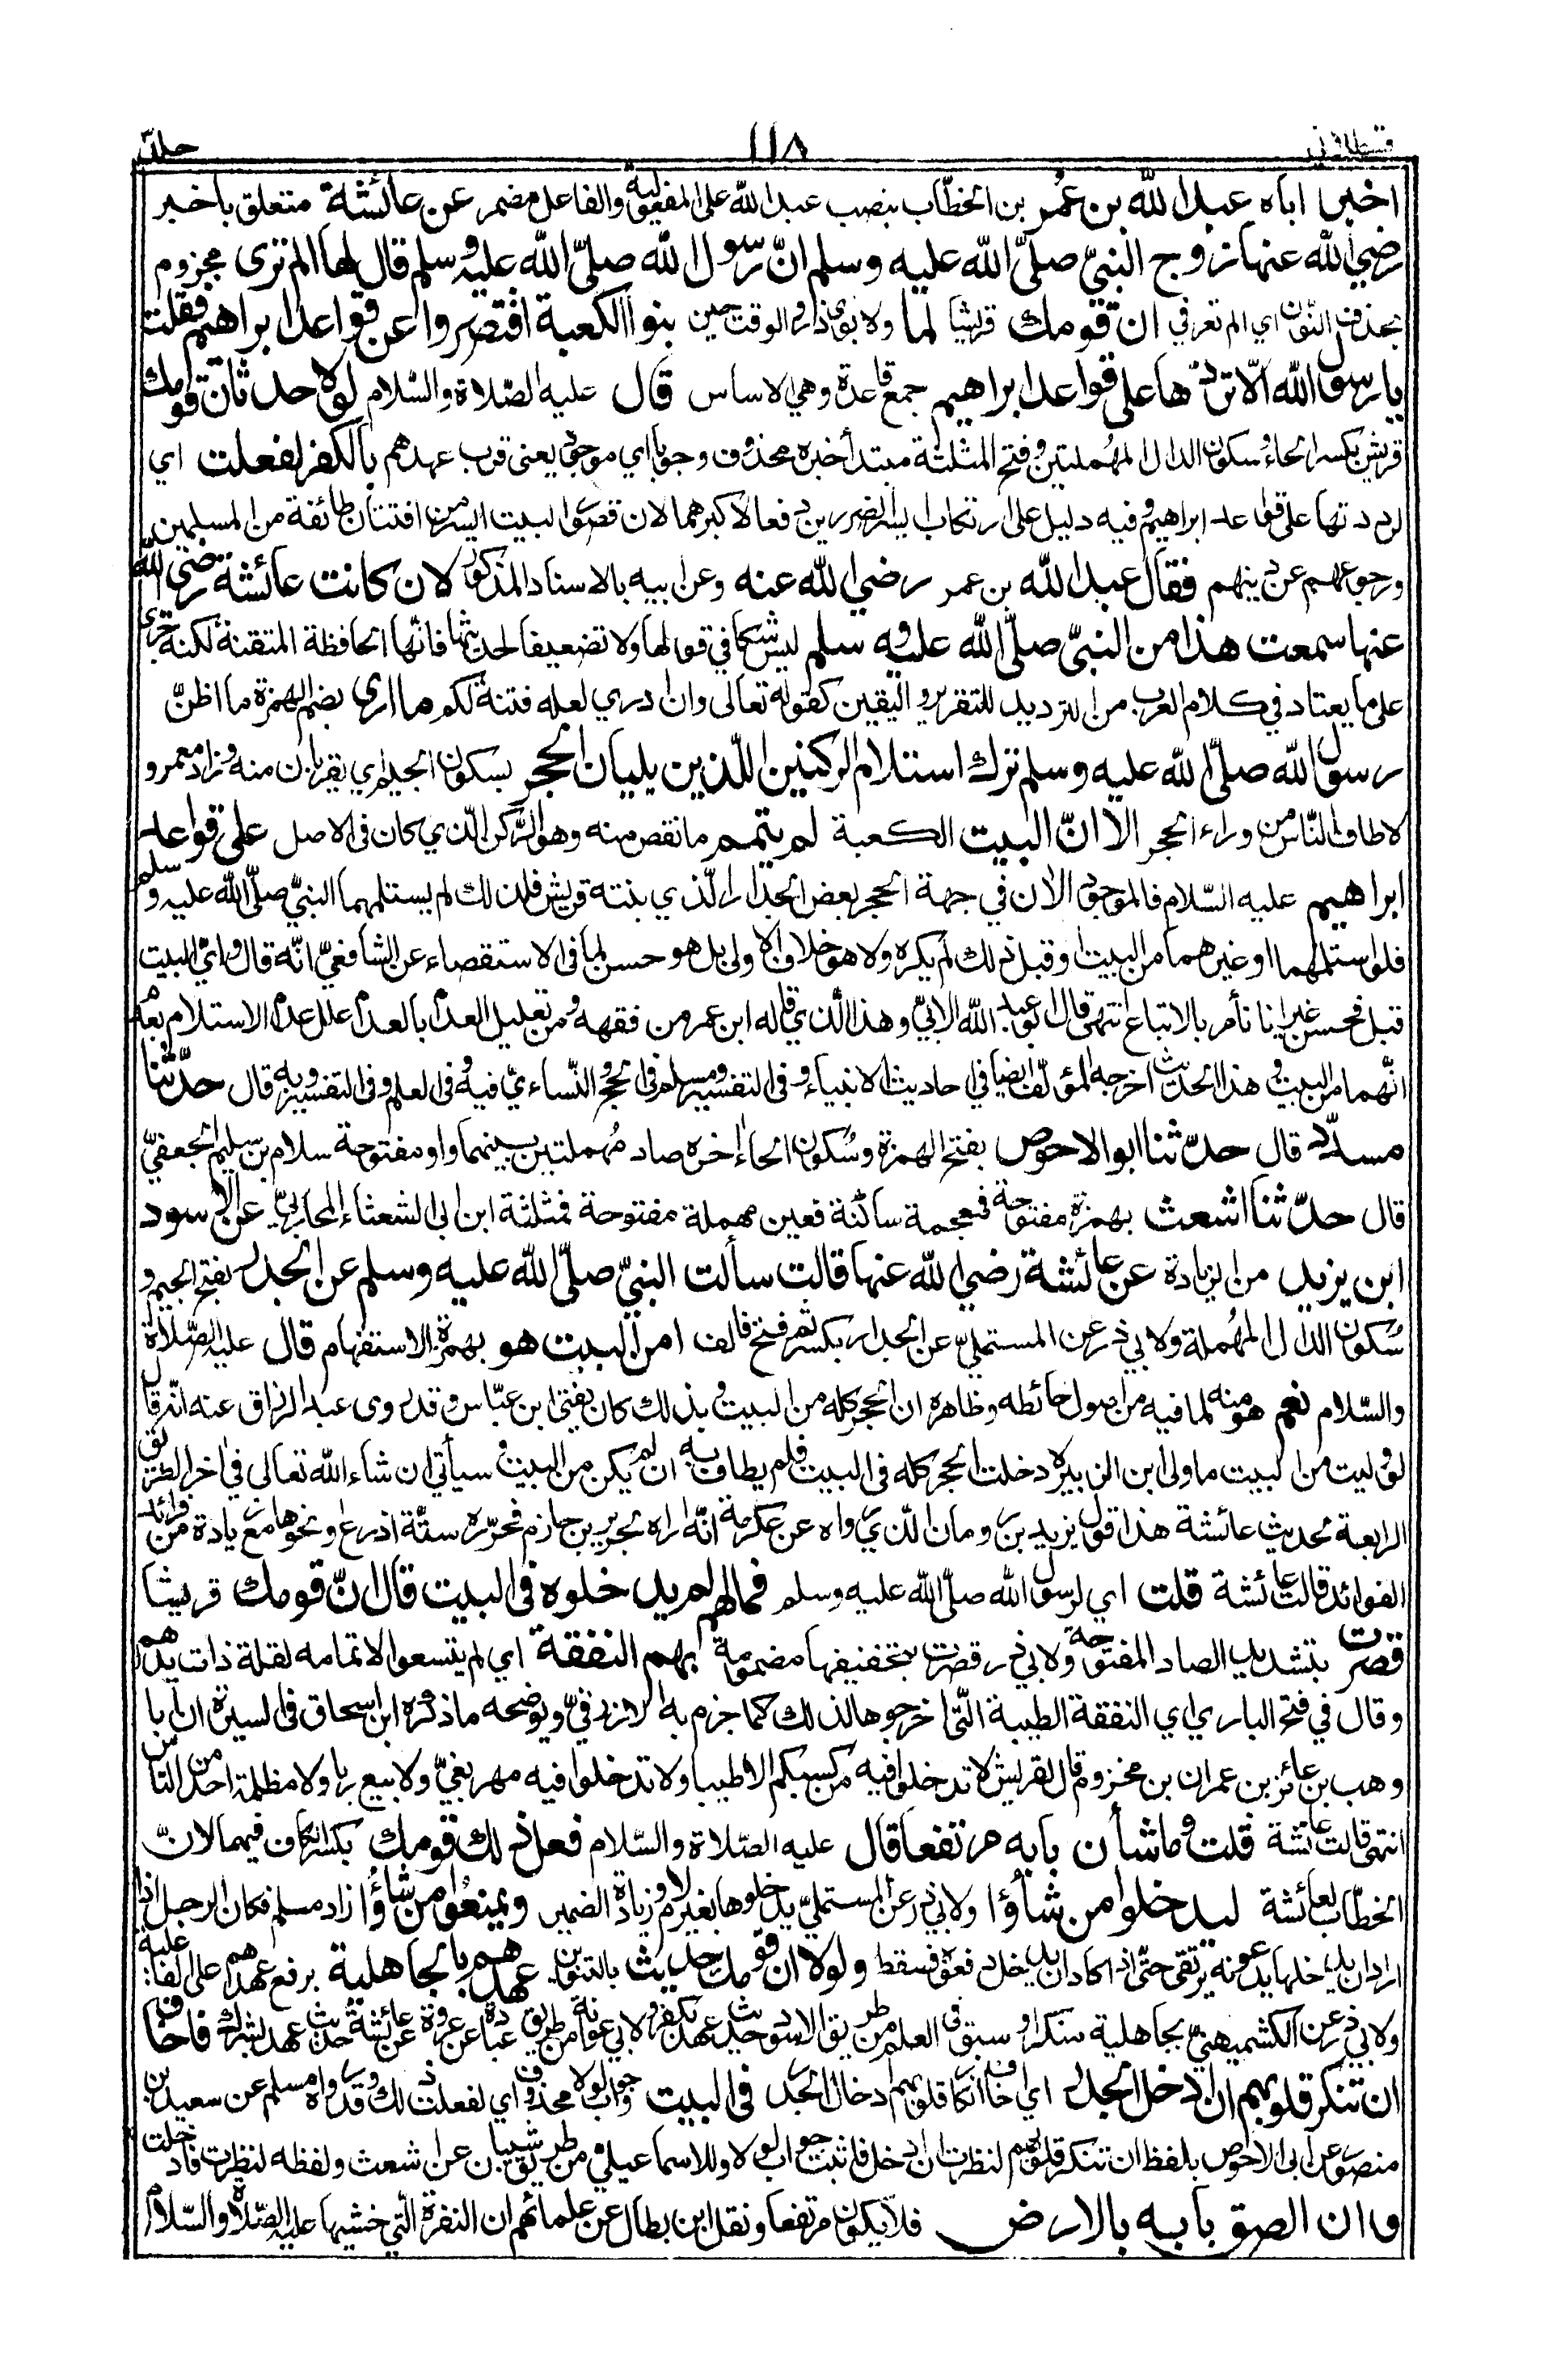 قسطلاني ١١٨ جلد
اخبر اباه عبد الله بن عمر بن الخطّاب بنصب عبد الله على المفعولية والفاعل مضمر عن عائشة متعلق باخبر
رضي الله عنها زوج النبيّ صلّى الله عليه وسلم انّ رسول الله صلّى الله عليه وسلم قال لها الم ترى مجزوم
بحذف النّون اي الم تعرفي ان قومك قريشا لما ولابوي ذر والوقت حين بنوا الكعبة اقتصروا عن قواعد ابراهيم فقلت
يا رسول الله الّا تردّها على قواعد ابراهيم جمع قاعدة وهي الاساس قال عليه الصّلاة والسّلام لولا حدثان قومك
قريش بكسر الحاء وسكون الدال المهملتين وفتح المثلثة مبتدأ خبره محذوف وجوبا اي موجود يعنى قرب عهدهم بالكفر لفعلت اي
لرددتها على قواعد ابراهيم وفيه دليل على ارتكاب ايسر الضررين دفعا لاكبرهما لان قصور البيت ايسر من افتتان طائفة من المسلمين
ورجوعهم عن دينهم فقال عبد الله بن عمر رضي الله عنه وعن ابيه بالاسناد المذكور لان كانت عائشة رضي الله
عنها سمعت هذا من النبيّ صلّى الله عليه وسلم ليس شكا في قولها ولا تضعيفا لحديثها فانّها الحافظة المتقنة لكنه جرى
على ما يعتاد في كلام العرب من الترديد للتقرير واليقين كقوله تعالى وان ادري لعله فتنة لكم ما ارى بضم الهمزة ما اظنّ
رسول الله صلّى الله عليه وسلم ترك استلام الركنين اللّذين يليان الحجر بسكون الجيم اي يقربان منه وزاد معمر و
لا طاف النّاس من وراء الحجر الا انّ البيت الكعبة لم يتمم ما نقص منه وهو الرّكن الّذي كان في الاصل على قواعد
ابراهيم عليه السّلام فالموجود الآن في جهة الحجر بعض الجدار الّذي بنته قريش فلذلك لم يستلمهما النبيّ صلّى الله عليه وسلم
فلو استلمهما او غيرهما من البيت او قبل ذلك لم يكره ولا هو خلاف الاولى بل هو حسن لما في الاستقصاء عن الشافعيّ انّه قال وايّ البيت
قبل فحسن غير انا نأمر بالاتباع انتهى قال ابو عبد الله الابيّ وهذا الّذي قاله ابن عمر من فقهه ومن تعليل العدم بالعدم علل عدم الاستلام بعدم
انّهما من البيت وهذا الحديث اخرجه المؤلّف ايضا في احاديث الانبياء وفى التفسير ومسلم فى الحج والنّساءيّ فيه وفى العلم وفى التفسير وبه قال حدّثنا
مسدّد قال حدّثنا ابو الاحوص بفتح الهمزة وسكون الحاء آخره صاد مهملتين بينهما واو مفتوحة سلام بن سليم الجعفيّ
قال حدّثنا اشعث بهمزة مفتوحة فمعجمة ساكنة فعين مهملة مفتوحة فمثلثة ابن ابى الشعثاء المحاربيّ عن الاسود
ابن يزيد من الزيادة عن عائشة رضي الله عنها قالت سألت النبيّ صلّى الله عليه وسلم عن الجدر بفتح الجيم و
سكون الدال المهملة ولابي ذر عن المستملي عن الجدار بكسر ثم فتح فالف امن البيت هو بهمزة الاستفهام قال عليه الصّلاة
والسّلام نعم هو منه لما فيه من اصول حائطه وظاهره ان الحجر كله من البيت وبذلك كان يفتى ابن عبّاس وقد روى عبد الرزاق عنه انّه قال
لو وليت من البيت ما ولى ابن الزبير لادخلت الحجر كله فى البيت فلم يطاف به ان لم يكن من البيت وسيأتي ان شاء الله تعالى في آخر الطريق
الرابعة لحديث عائشة هذا قول يزيد بن رومان الّذي رواه عن عكرمة انّه اراه لجرير بن حازم فحزره ستّة اذرع ونحوها مع زيادة من فرائد
الفوائد قالت عائشة قلت اي لرسول الله صلّى الله عليه وسلم فمالهم لم يدخلوه فى البيت قال انّ قومك قريشا
قصّرت بتشديد الصاد المفتوحة ولابي ذر قصرت بتخفيفها مضمومة بهم النفقة اي لم يتسعوا لاتمامه لقلة ذات يدهم
وقال في فتح الباري اي النفقة الطيبة الّتي اخرجوها لذلك كما جزم به الازرقيّ ويوضحه ما ذكره ابن اسحاق فى السيرة ان ابا
وهب بن عائز بن عمران بن مخزوم قال لقريش لا تدخلوا فيه من كسبكم الا طيبا ولا تدخلوا فيه مهر بغيّ ولا بيع ربا ولا مظلمة احد من النّاس
انتهى قالت عائشة قلت وما شأن بابه مرتفعا قال عليه الصّلاة والسّلام فعل ذلك قومك بكسر الكاف فيهما لانّ
الخطّاب لعائشة ليدخلوا من شاؤا ولابي ذر عن المستملي يدخلوها بغير لام وزيادة الضمير ويمنعوا من شاؤا زاد مسلم فكان الرجل اذا
اراد ان يدخلها يدعونه يرتقى حتّى اذا كاد ان يدخل دفعوه فسقط ولولا ان قومك حديث بالتنوين عهدهم بالجاهلية برفع عهدهم على الفاعلية
ولابي ذر عن الكشميهني بجاهلية منكرا وسبق فى العلم من طريق الاسود حديث عهد بكفر ولابي عوانة من طريق عبادة عن عروة عن عائشة حديث عهد بشرك فاخاف
ان تنكر قلوبهم ان ادخل الجدر اي اخاف انكار قلوبهم ادخال الجدر فى البيت وجواب لولا محذوف اي لفعلت ذلك وقد رواه مسلم عن سعيد بن
منصور عن ابى الاحوص بلفظ ان تنكر قلوبهم لنظرت ان ادخل فاثبت جواب لولا وللاسماعيليّ من طريق شيبان عن اشعث ولفظه لنظرت فادخلت
وان الصق بابه بالارض فلا يكون مرتفعا ونقل ابن بطال عن علمائهم ان النفرة الّتي خشيها عليه الصّلاة والسّلام